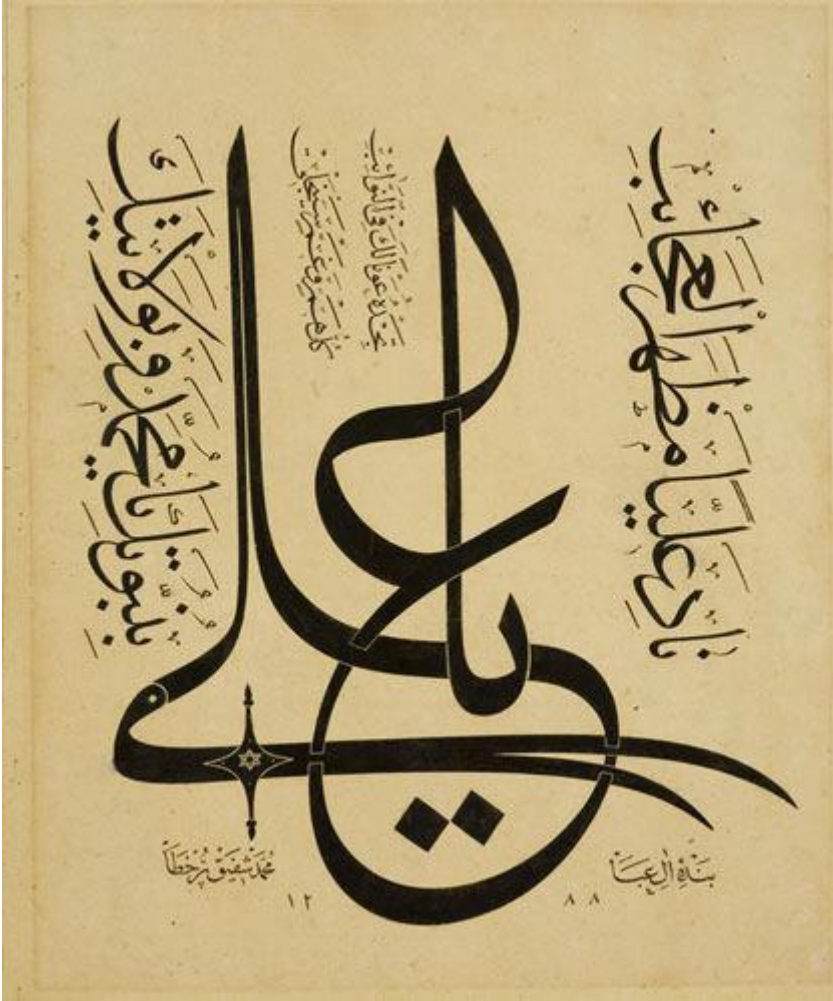 نَادِ عَلِيًّا مَظْهَرَ الْعَجَائِبِ
تَجِدْهُ عَوْنًا لَكَ فِي النَّوَائِبِ
كُلُّ هَمٍّ وَغَمٍّ سَيَنْجَلِي
بِنُبُوَّتِكَ يَا مُحَمَّدُ وَبِوَلَايَتِكَ
يا علي
بنده آل عبا
محمد شفيق پرخطا
١٢ ٨٨